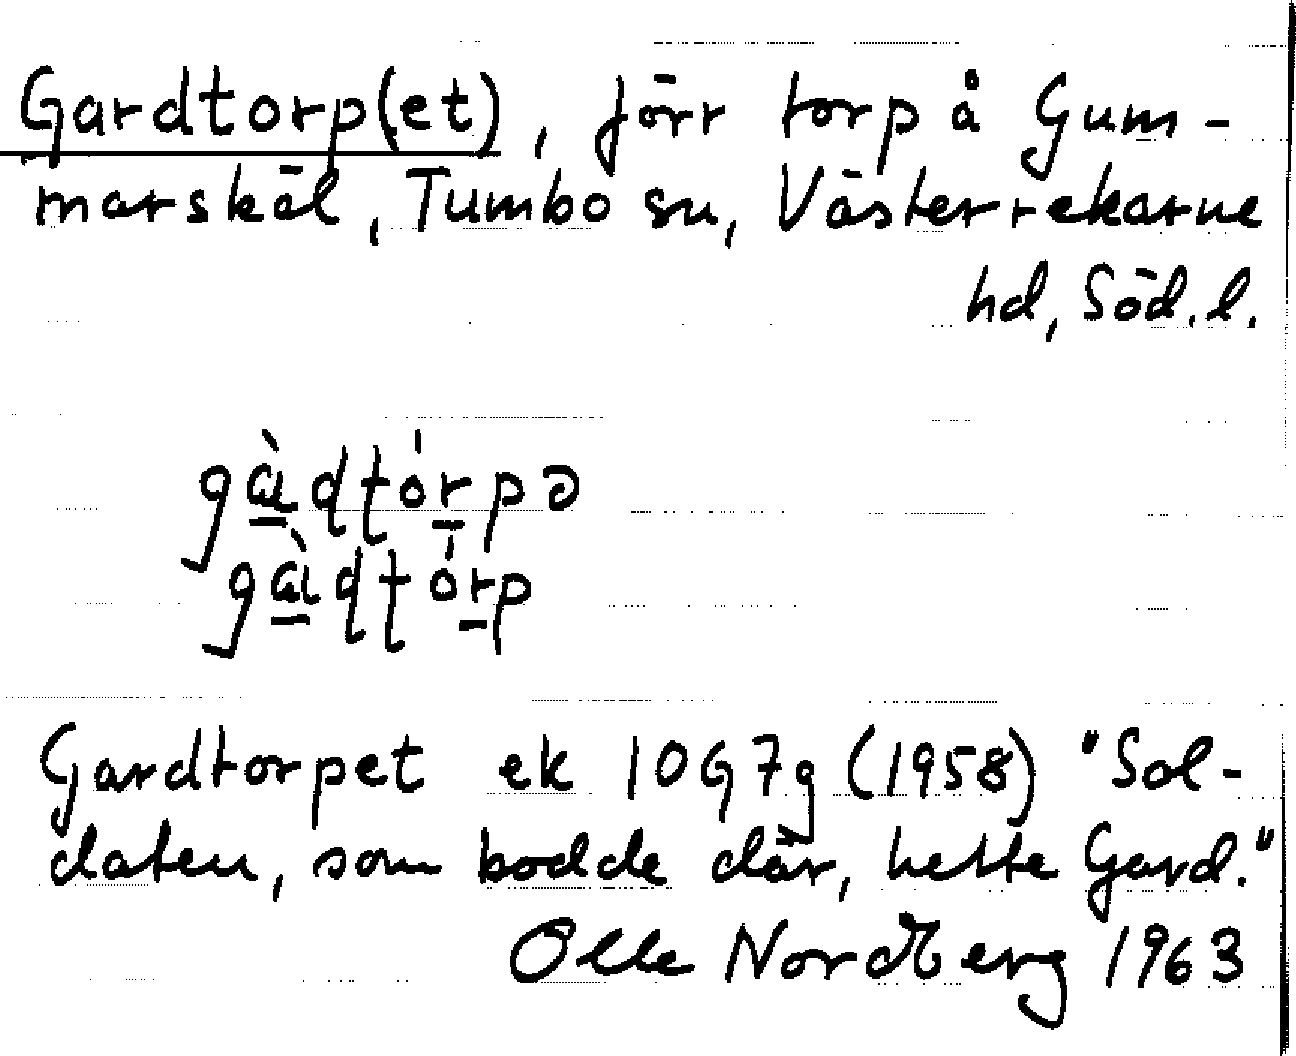 Gardtorp(et), förr torp å Gum-
marskäl, Tumbo sn, Västerrekarne
hd, Söd.l.
gàdtórpə
gàdtórp
Gardtorpet ek 10G7g (1958) "Sol-
daten, som bodde där, hette Gard."
Olle Nordberg 1963